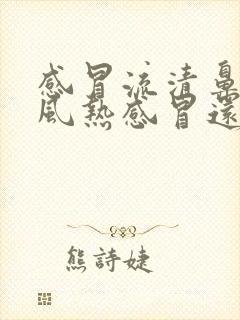 感冒流清鼻
風熱感冒還
熊詩婕